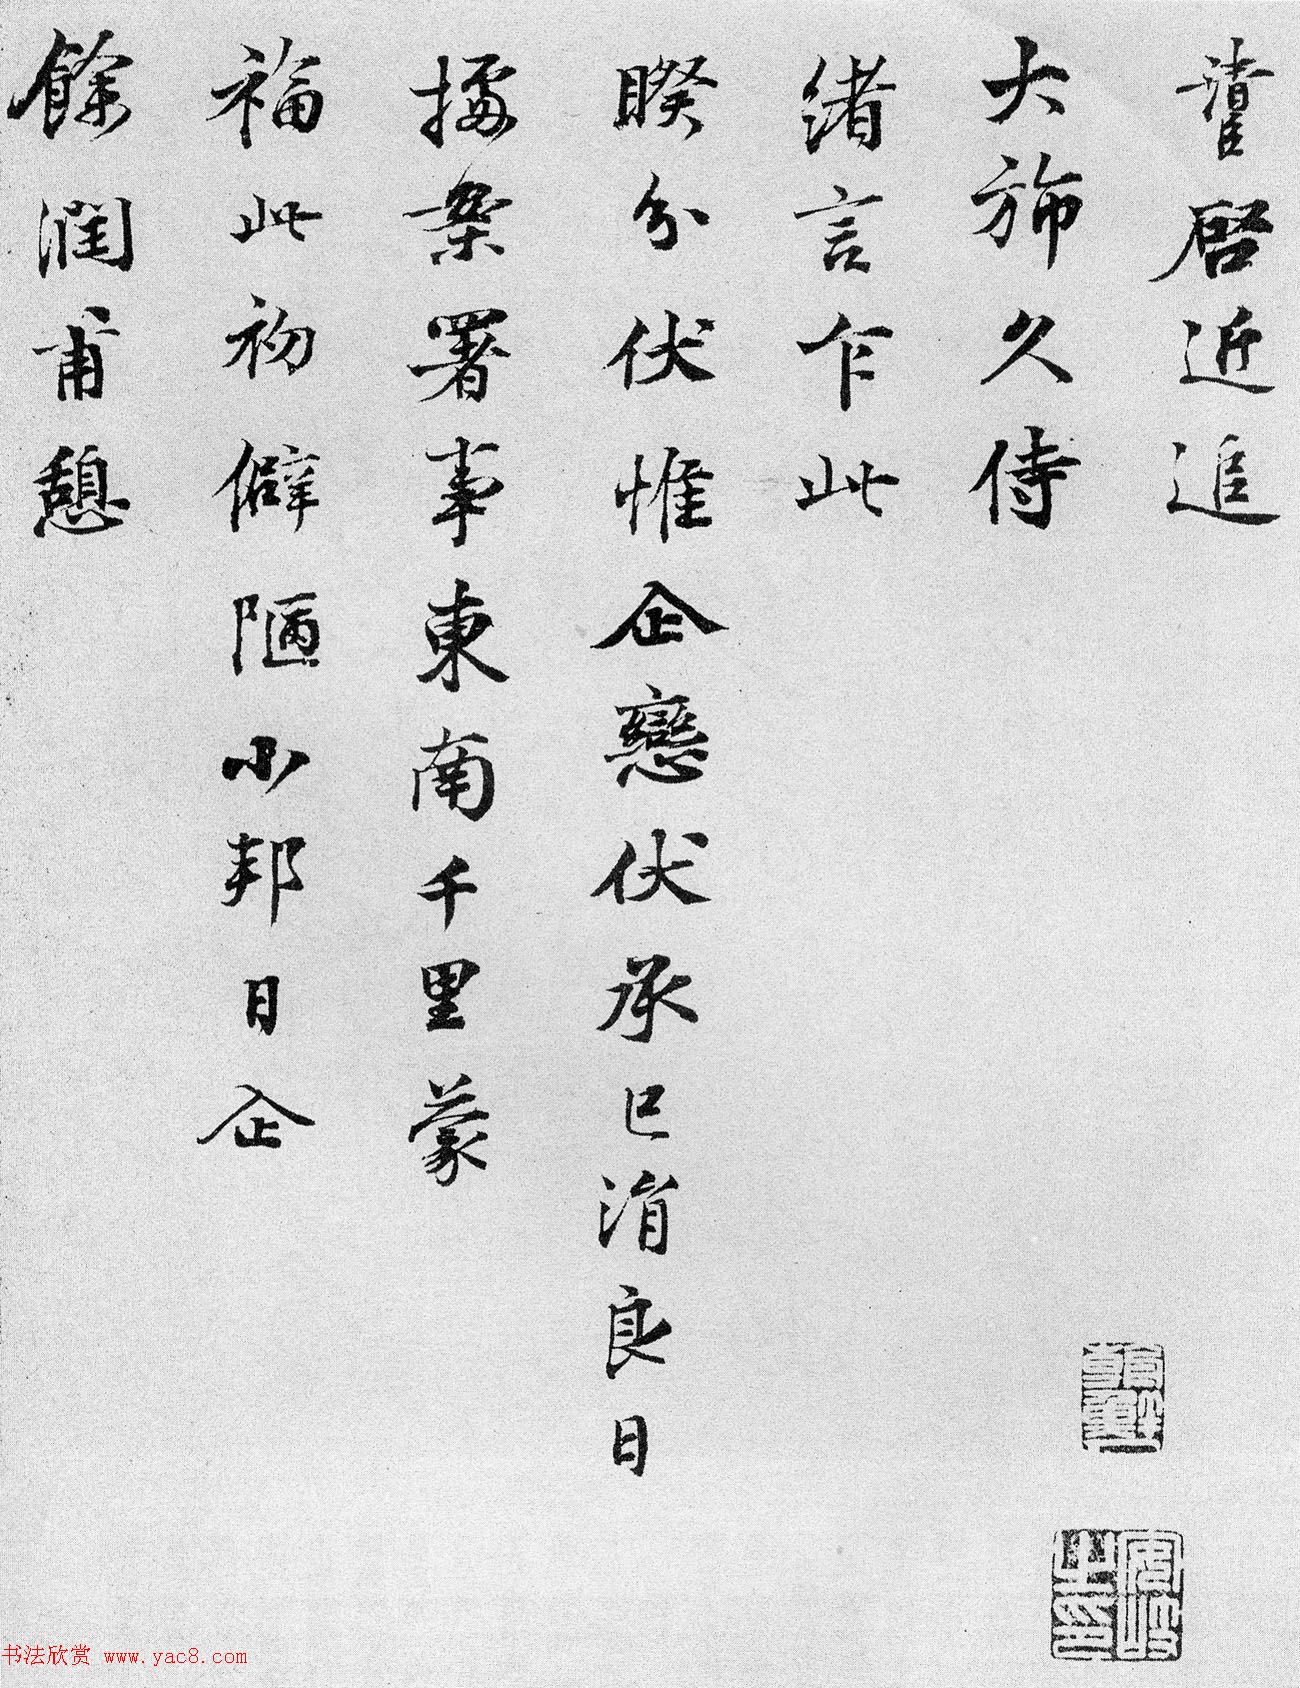 啓近追
大旆久侍
緒言乍此
睽分伏惟企戀伏承已涓良日
據案署事東南千里蒙
福此初僻陋小邦日企
餘潤甫憩
書法欣赏 www.yac8.com